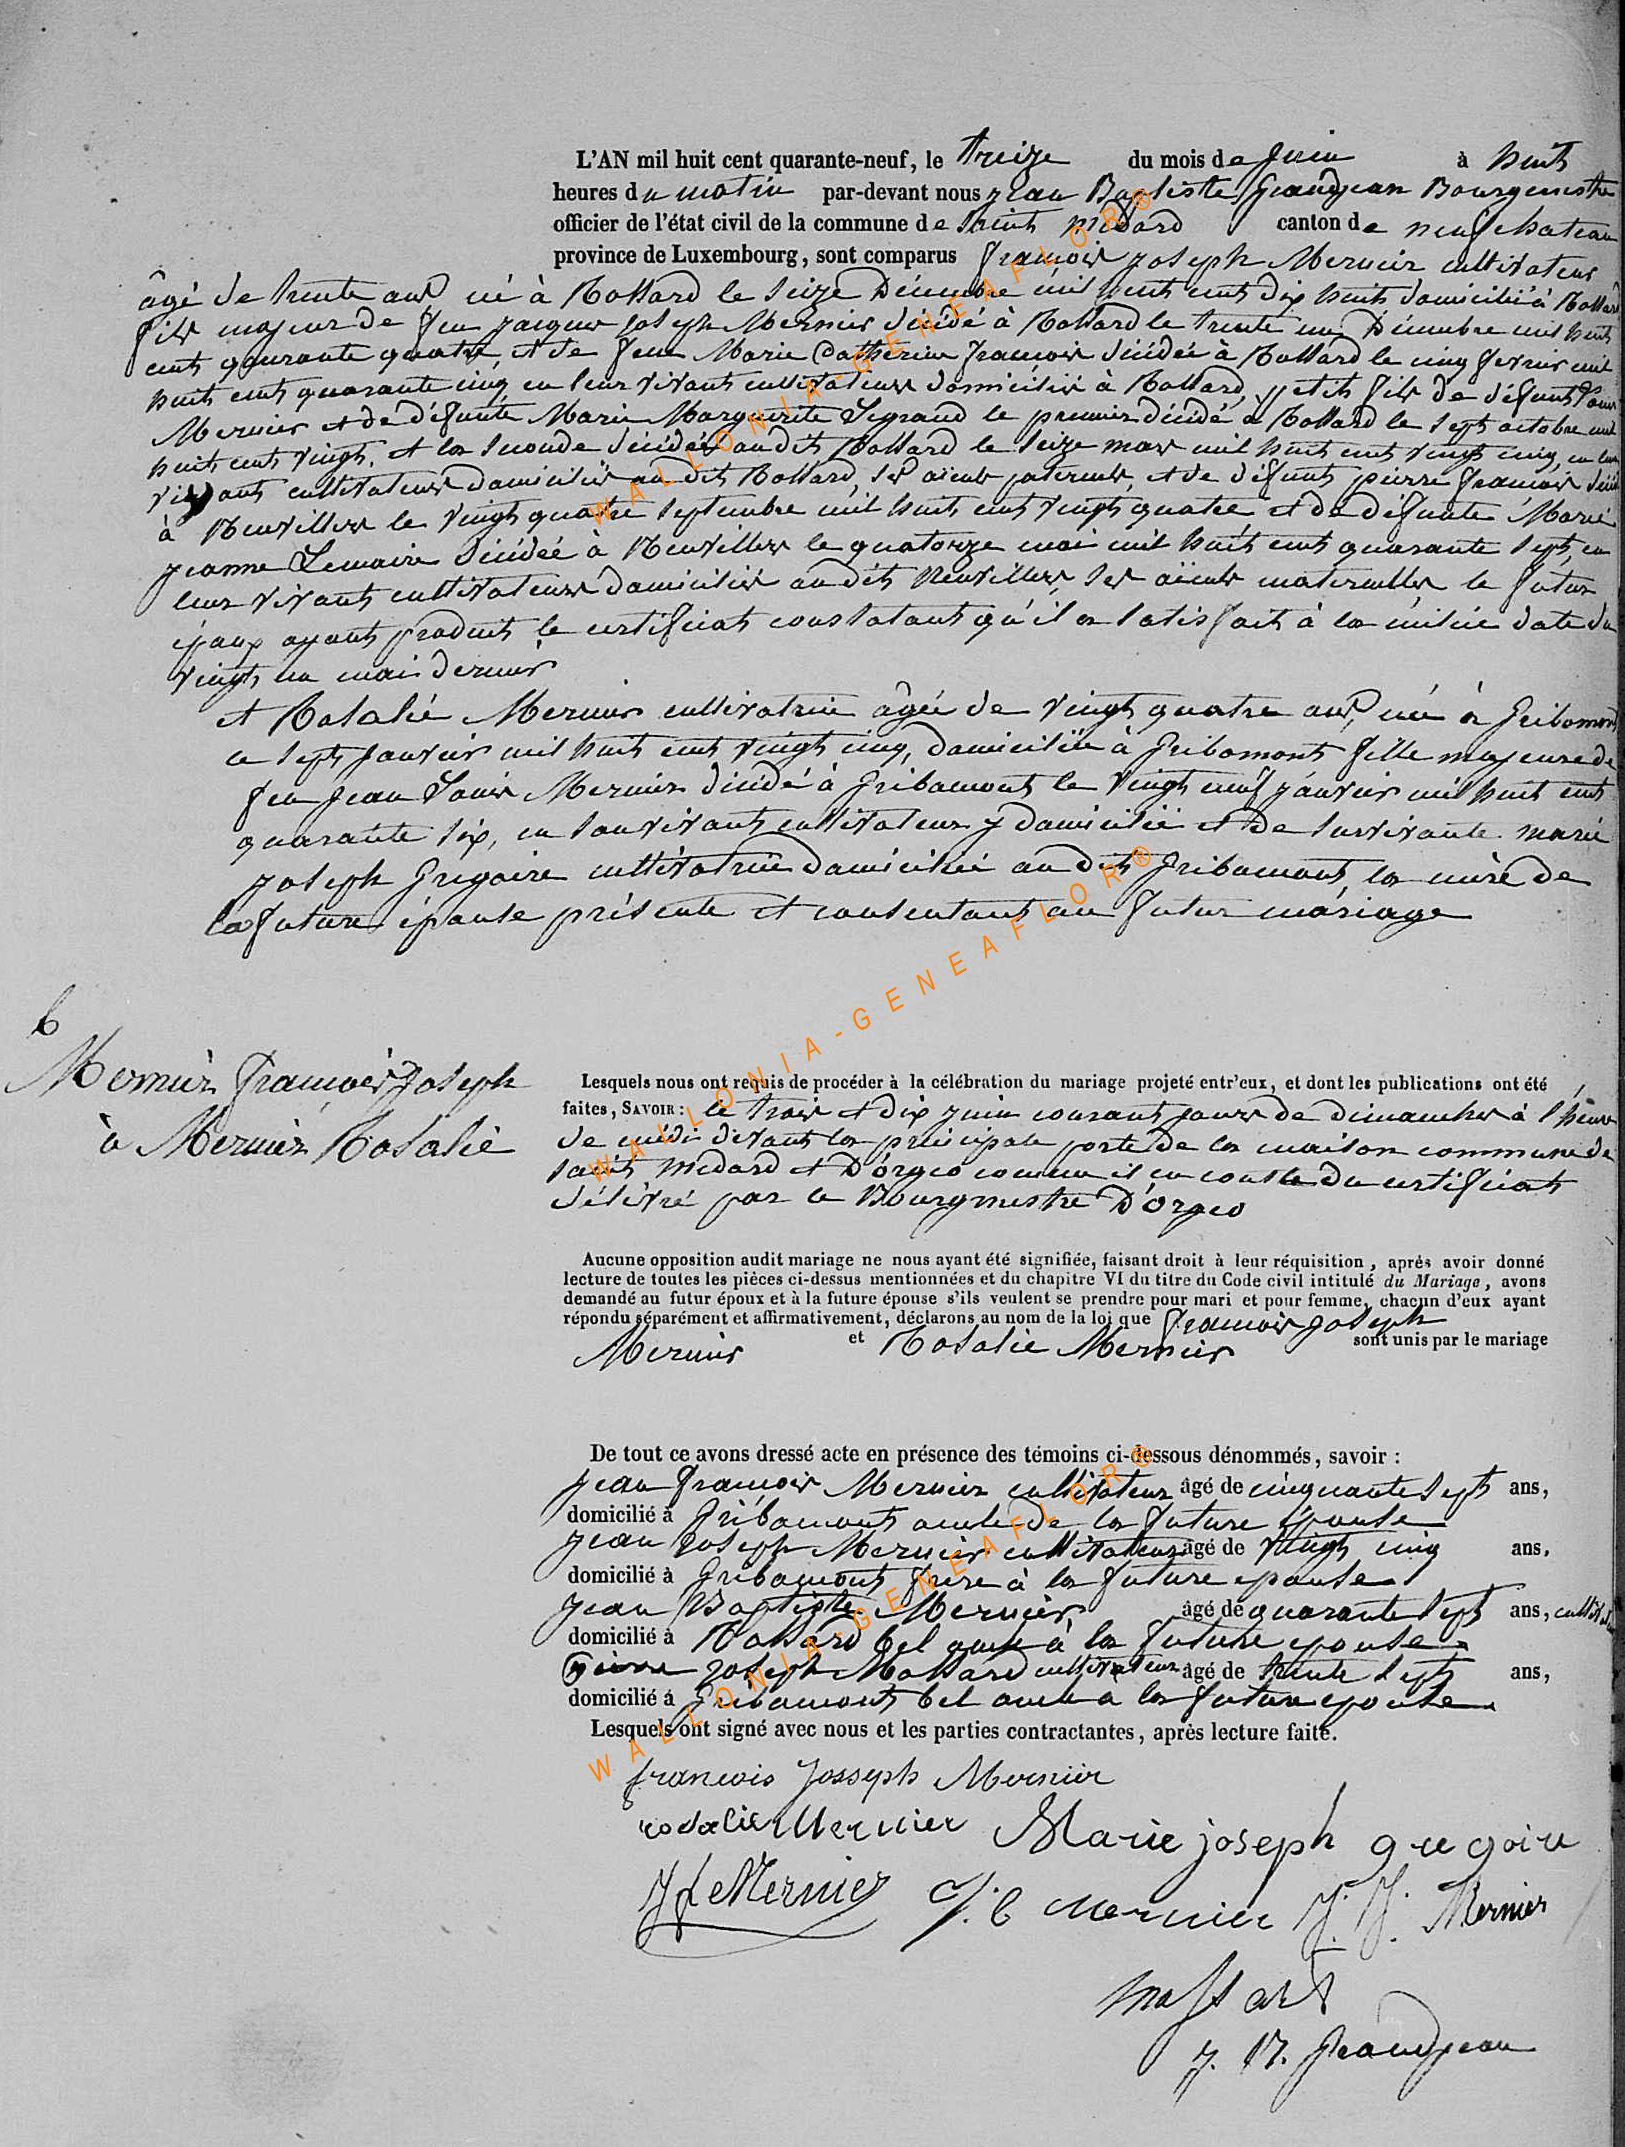 L'AN mil huit cent quarante-neuf, le treize du mois de juin à huit
heures du matin par-devant nous jean Baptiste Grandjean Bourgmestre
officier de l'état civil de la commune de saint médard canton de neufchateau
province de Luxembourg, sont comparus françois joseph Mernier cultivateur
âgé de trente ans né à Rossard le seize Décembre mil huit cent dix huit domicilié à Rossard
fils majeur de feu jacques joseph Mernier décédé à Rossard le trente un Décembre mil huit
cent quarante quatre, et de feue Marie Catherine françois décédée à Rossard le cinq fevrier mil
huit cent quarante cinq en leur vivant cultivateurs domiciliés à Rossard, petit fils de défunt Louis
Mernier et de défunte Marie Marguerite Legrand le premier décédé à Rossard le sept octobre mil
huit cent vingt, et la seconde décédée audit Rossard le seize mars mil huit cent vingt cinq, en leur
vivant cultivateurs domiciliés audit Rossard, ses aïeuls paternels, et de défunt pierre françois décédé
à Neuvillers le vingt quatre septembre mil huit cent vingt quatre et de défunte Marie
jeanne Lemaire décédée à Neuvillers le quatorze mai mil huit cent quarante sept, en
leur vivant cultivateurs domiciliés audit Neuvillers, ses aïeuls maternelles le futur
époux ayant produit le certificat constatant qu'il a satisfait à la milice date du
vingt un mai dernier
et Rosalie Mernier cultivatrice âgée de vingt quatre ans, née à Gribomont
le sept janvier mil huit cent vingt cinq, domiciliée à Gribomont fille majeure de
feu jean Louis Mernier décédé à Gribomont le vingt neuf janvier mil huit cent
quarante six, en son vivant cultivateur y domicilié et de survivante marie
joseph Grégoire cultivatrice domiciliée audit Gribomont, la mère de
la future épouse présente et consentant au futur mariage
6
Mernier françois joseph
à Mernier Rosalie
Lesquels nous ont requis de procéder à la célébration du mariage projeté entr'eux, et dont les publications ont été
faites, SAVOIR : le trois et dix juin courant jours de dimanches à l'heure
de midi devant la principale porte de la maison commune de
saint médard et D'orgeo comme il en conste du certificat
délivré par le Bourgmestre D'orgeo
Aucune opposition audit mariage ne nous ayant été signifiée, faisant droit à leur réquisition, après avoir donné
lecture de toutes les pièces ci-dessus mentionnées et du chapitre VI du titre du Code civil intitulé du Mariage, avons
demandé au futur époux et à la future épouse s'ils veulent se prendre pour mari et pour femme, chacun d'eux ayant
répondu séparément et affirmativement, déclarons au nom de la loi que françois joseph
Mernier et Rosalie Mernier sont unis par le mariage
De tout ce avons dressé acte en présence des témoins ci-dessous dénommés, savoir :
jean françois Mernier cultivateur âgé de cinquante sept ans,
domicilié à Gribomont oncle de la future épouse
jean joseph Mernier cultivateur âgé de vingt cinq ans,
domicilié à Gribomont frere à la future epouse
jean Baptiste Mernier, âgé de quarante sept ans, cultivateur
domicilié à Rossard bel oncle à la future epouse
pierre joseph Massard cultivateur âgé de trente sept ans,
domicilié à Gribomont bel oncle à la future epouse.
Lesquels ont signé avec nous et les parties contractantes, après lecture faite.
francois Josseph Mernier
rosalie Mernier Marie joseph gregoire
J f Mernier J. b Mernier J. J. Mernier
Massart
J. B. Grandjean
WALLONIA-GENEAFLOR®
WALLONIA-GENEAFLOR®
WALLONIA-GENEAFLOR®